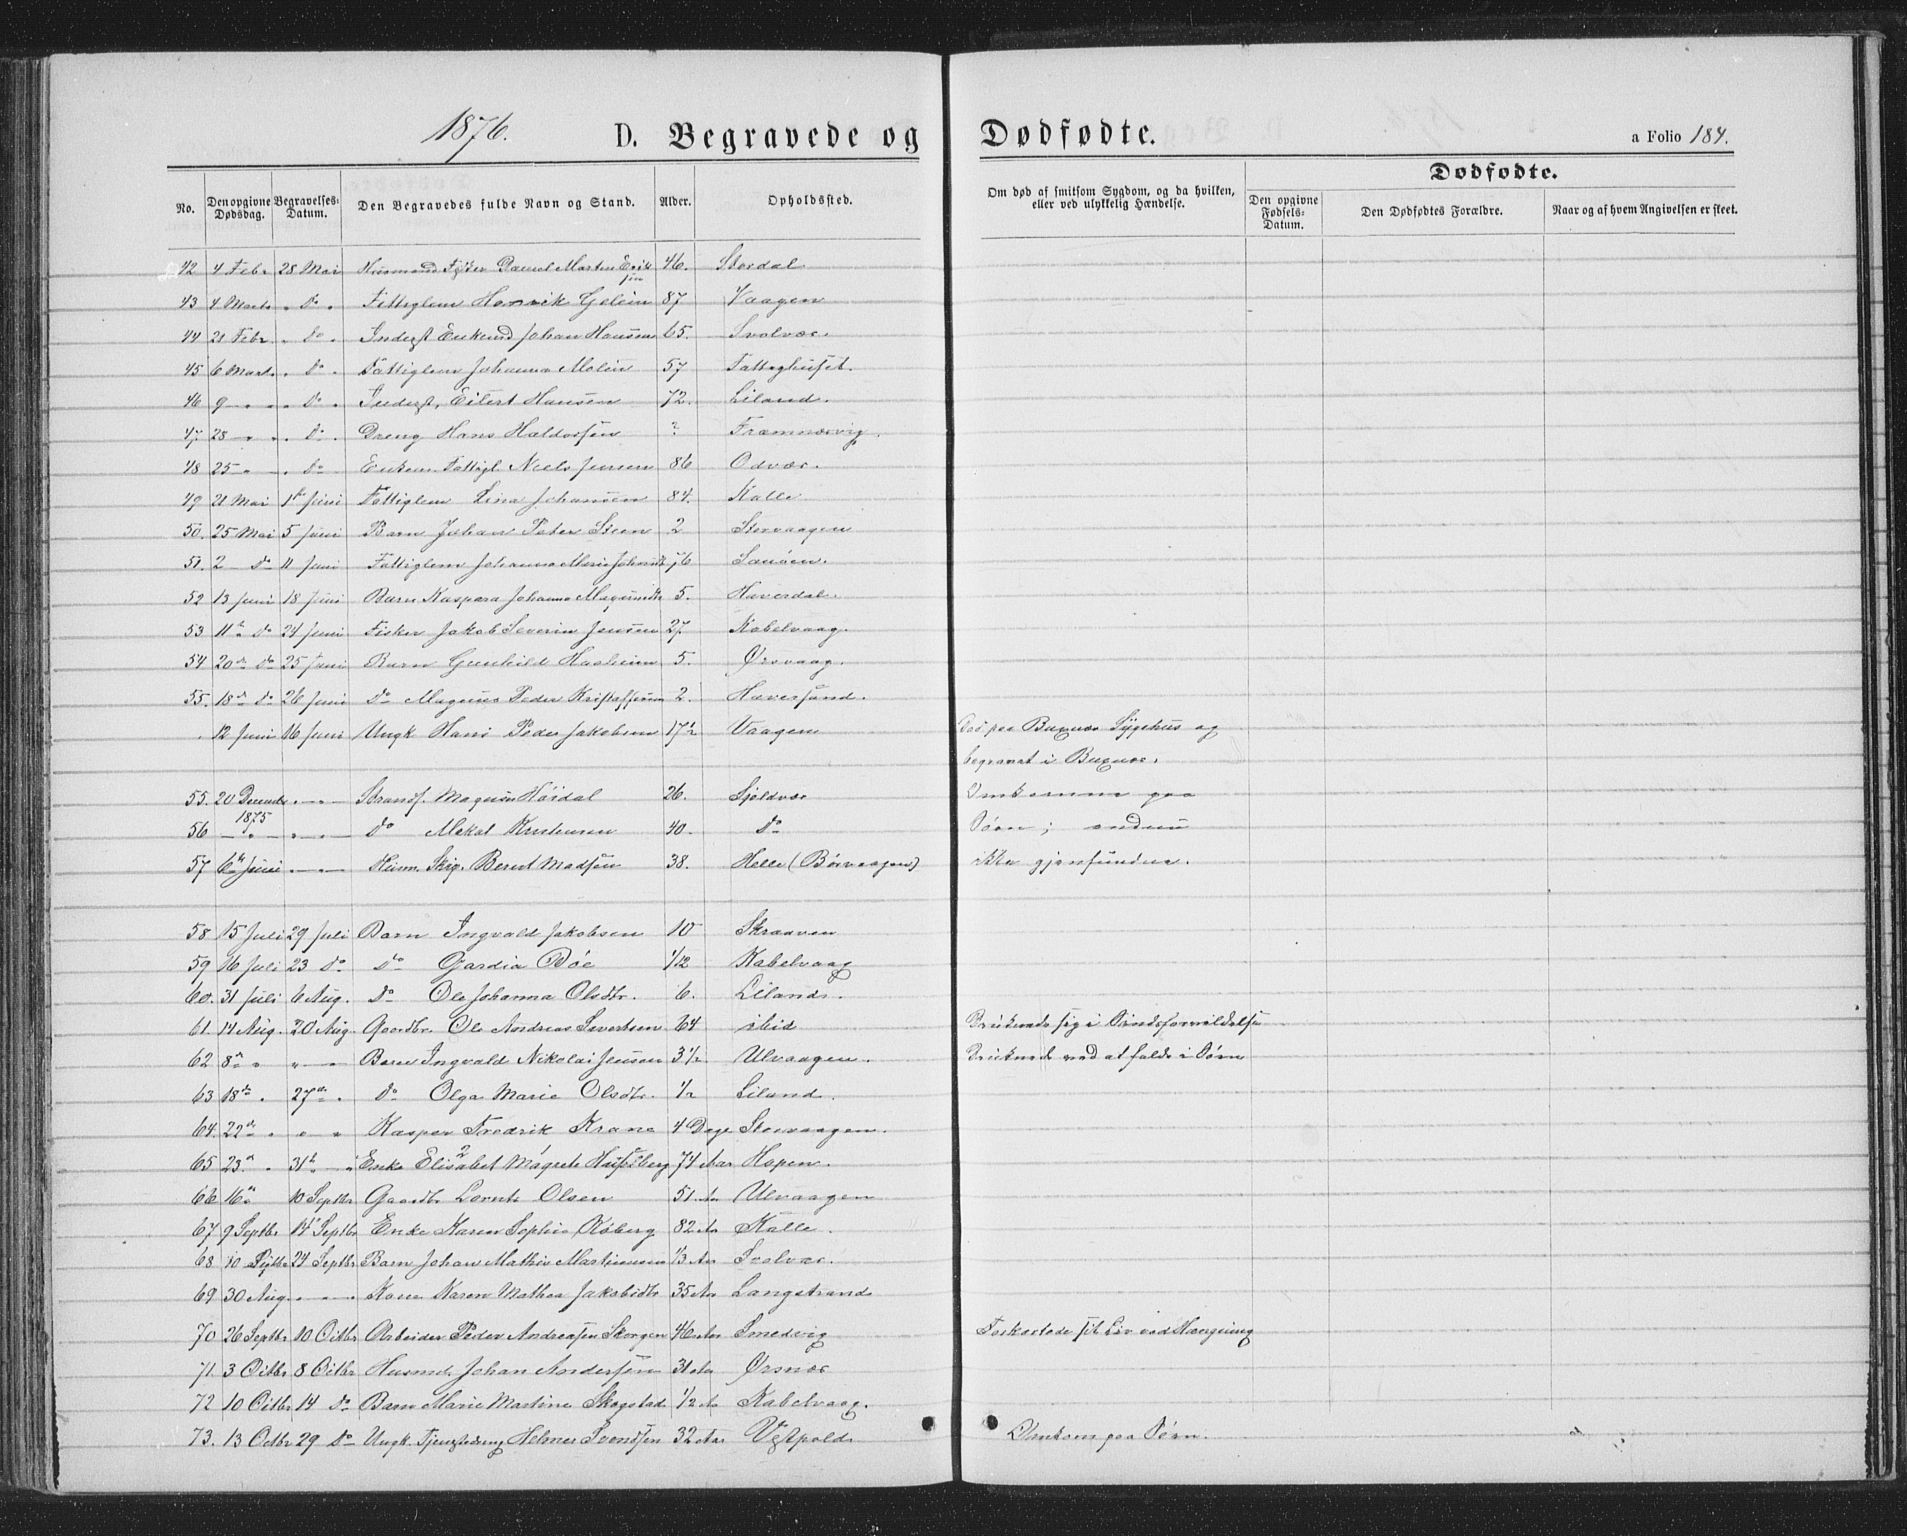 1876. D. Begravede og Dødfødte. a Folio 184.
Dødfødte.
No. Den opgivne Dødsdag. Begravelses-Datum. Den Begravedes fulde Navn og Stand. Alder. Opholdssted. Om død af smitsom Sygdom, og da hvilken, eller ved ulykkelig Hændelse. Den opgivne Fødsels-Datum. Den Dødfødtes Forældre. Naar og af hvem Angivelsen er skeet.
42 4 Febr 28 Mai Daniel Martin Erik 46. Stordal
sen
43 4 Marts " Do " Fattiglem Henrik 87 Vaagen
44 21 Febr. " Do " Inderst Enkemd Johan Hansen 65. Svolvær.
45 6 Marts " Do " Fattiglem Johanna 57 Fattighuset.
46 9 " " " Do " Inderst, Eilert Hansen 72. Liland.
47. 28 " " " Do " Dreng Hans Haldorsen ? Framnæsvig.
48 25 " " Do Enkem. Fattigl. Niels Jensen 86 Odvær.
49 21 Mai 1ste Juni Fattiglem Lina Johansen 84. Kalle
50. 25 Mai 5 Juni Barn Johan Peter Steen 2 Storvaagen
51. 2 Do 11 Juni Fattiglem Johanna Marie 76
52 13 Juni 18 Juni Barn Kaspara Johanna 5. Haverdal.
53 11te Do 24 Juni Fisker Jakob Severin Jensen 27. Kabelvaag.
54 20de Do 25 Juni Barn Gunhild 5. Ørsvaag.
55. 18de Do 26 Juni Do Magnus Peder Kristoffersen 2. Haversund.
12 Juni 16 Juni Ungk Hans Peder Jakobsen 17½ Vaagen Død paa Buxnæs Sygehus og
begravet i Buxnæs.
55. 20 Decembr " " " Høidal 26. Skjoldvær Omkomne paa
1875
56 " " " Do Mekal Kristensen 40. Do Søen; endnu
57 6te Juni " " Husm. Skrg. Bernt Madsen 38. Helle (Børvaagen) ikke gjenfundne.
58 15 Juli 29 Juli Barn Ingvald Jakobsen 10 Skraaven
59 16 Juli 23 Do Do Gardia Bøe 1/12 Kabelvaag
60. 31 Juli 6 Aug. Do Ole Johanna Olsdtr. 6. Liland.
61. 14 Aug. 20 Aug. Gaardbr. Ole Andreas Sivertsen 64 ibid Druknede sig i Sindsforvildelse
62 8de " " " Barn Ingvald Nikolai Jensen 3½ Ulvaagen. Druknede ved at falde i Søen
63 18de " 27de " Do Olga Marie Olsdtr. ½ Liland.
64. 22de " " " Kasper Fredrik Krane 4 Dage Storvaagen.
65 23de " 31te " Enke Elisabet Magrete 74 Aar Hopen.
66 16de 10 Septbr Gaardbr Lornts Olsen 51 Aar Ulvaagen
67 9 Septbr 14 Septbr Enke Karen Sophie 82 Aar Kalle.
68 10 Septbr 24 Septbr Barn Johan Mathis Martinussen 1/3 Aar Svolvær.
69 30 Aug. " " " Kone Karen Mathea Jakobsdtr 35 Aar Langstrand
70 26 Septbr 10 Octbr Arbeider Peder Andreasen Skorgen 46 Aar Smedvig Forkortede sit Liv ved Hængning
71. 3 Octbr 8 Octbr Husmd. Johan Andersen 31 Aar Ørsnæs
72 10 Octbr 14 Do Barn Marie Martine Skogstad ½ Aar Kabelvaag.
73. 13 Octbr 29 Do Ungk. Tjenestedreng Helmer Svendsen 32 Aar Vestpold. Omkom paa Søen.